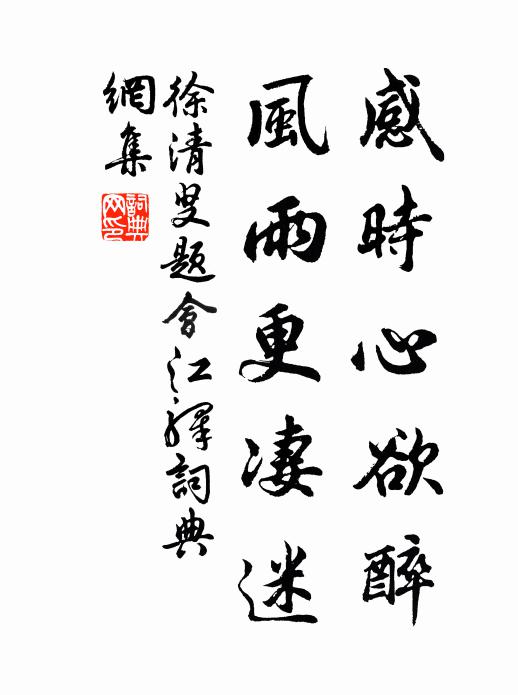 感時心欲醉
風雨更凄迷
徐清叟題會江驛詞典
網集
詞典
网印